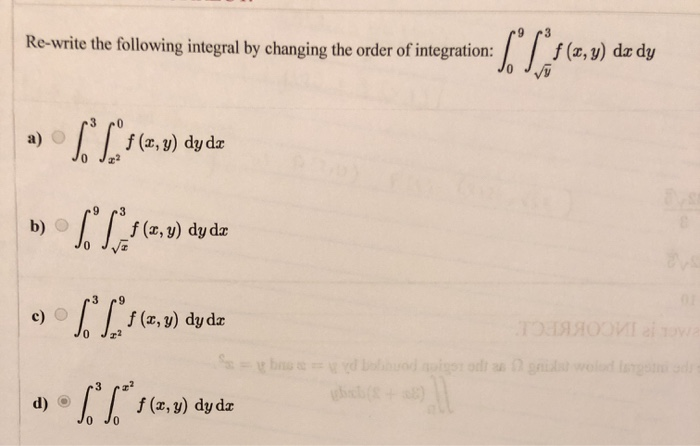 Re-write the following integral by changing the order of integration: ∫₀⁹ ∫_{√y}³ f (x, y) dx dy
a) ∫₀³ ∫_{x²}⁰ f (x, y) dy dx
b) ∫₀⁹ ∫_{√x}³ f (x, y) dy dx
c) ∫₀³ ∫_{x²}⁹ f (x, y) dy dx
d) ∫₀³ ∫₀^{x²} f (x, y) dy dx